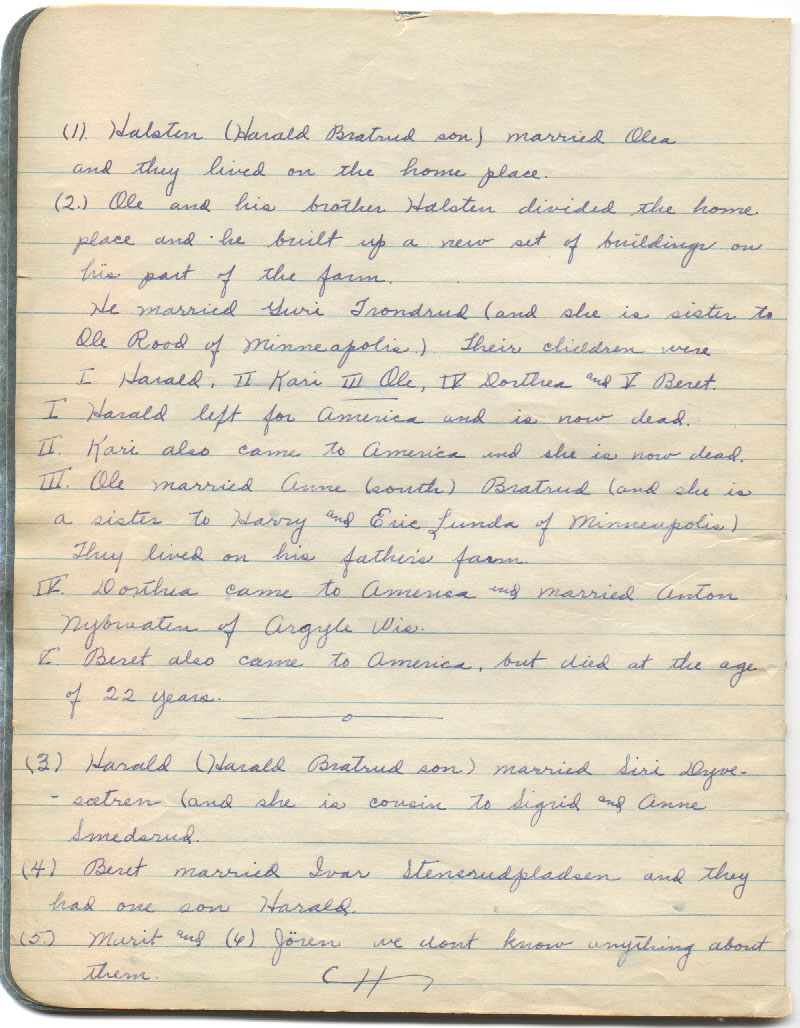 (1). Halsten (Harald Bratrud son) married Olea
and they lived on the home place.
(2.) Ole and his brother Halsten divided the home
place and he built up a new set of buildings on
his part of the farm.
He married Guri Trondrud (and she is sister to
Ole Rood of Minneapolis.) Their children were
I Harald, II Kari III Ole, IV Dorthea and V Beret.
I Harald left for America and is now dead.
II. Kari also came to America and she is now dead.
III. Ole married Anne (south) Bratrud (and she is
a sister to Harry and Eric Lunda of Minneapolis)
They lived on his father's farm.
IV. Dorthea came to America and married Anton
Nybraaten of Argyle Wis.
V. Beret also came to America, but died at the age
of 22 years.
(3) Harald (Harald Bratrud son) married Siri Dyve-
-sætren (and she is cousin to Sigrid and Anne
Smedsrud.
(4) Beret married Ivar Stensrudpladsen and they
had one son Harald.
(5.) Marit and (6) Jören we dont know anything about
them.